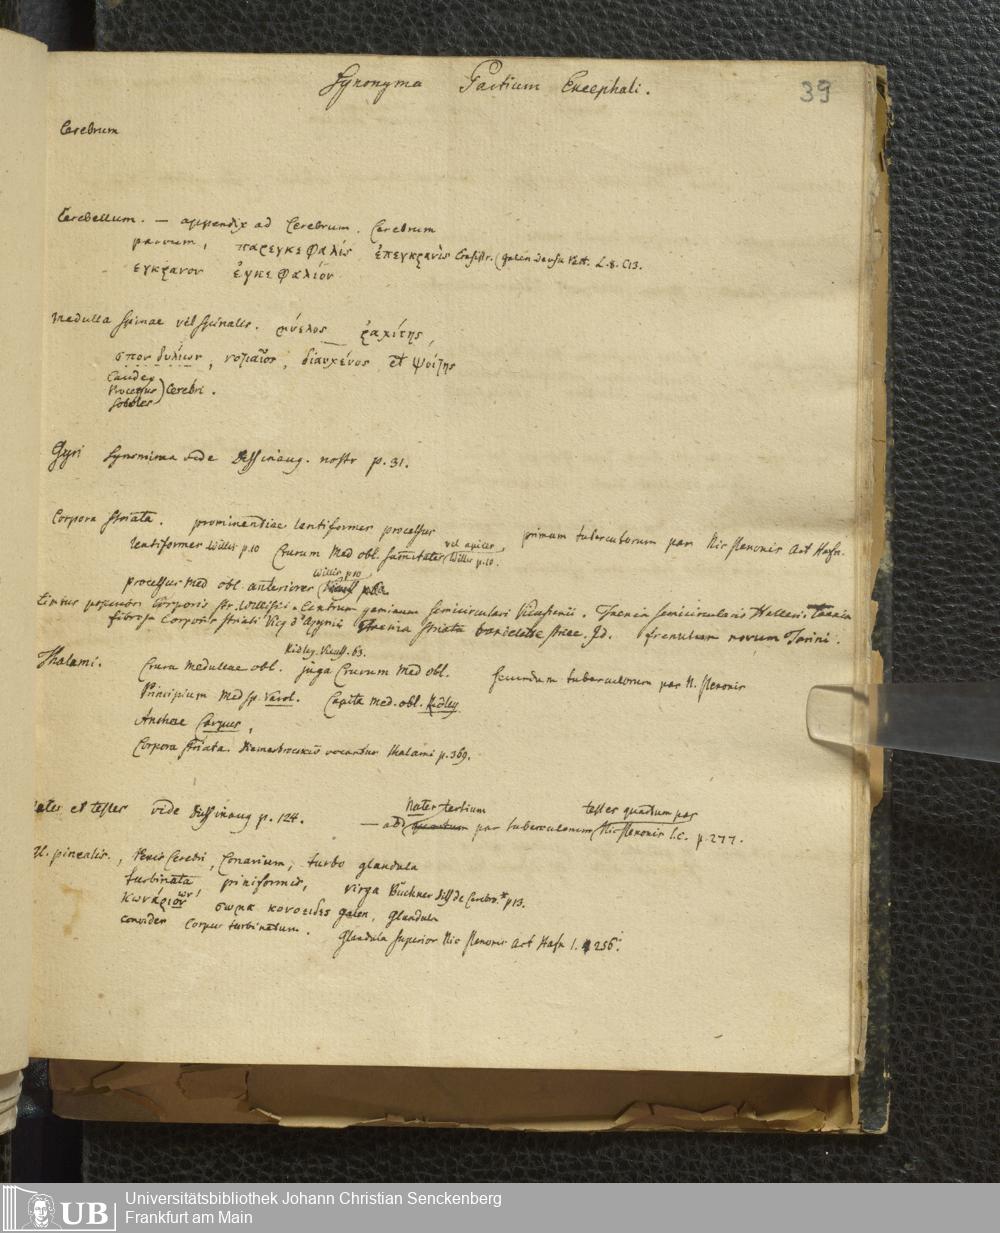 Synonyma Partium Encephali.
39
Cerebrum
Cerebellum. — appendix ad Cerebrum. Cerebrum
parvum, παρεγκεφαλίς ἐπεγκρανὶς Erasistr. (Galen de usu Part. L. 8. C 13.
εγκρανον ἐγκεφαλίον
Medulla Spinae vel Spinalis. μύελος ῥαχίτης,
σπονδυλίων, νοτιαῖος, διαυχένος et ψοίτης
Caudex
Processus ) Cerebri.
Soboles
Gyri Synonima vide Diss inaug. nostr p. 31.
Corpora striata. prominentiae lentiformes processus
primum tuberculorum par Nic Stenonis Act Hafn.
lentiformes Willis p. 10 Crurum Med obl. summitates vel apices (Willis p. 10.
processus Med obl. anteriores Willis p 10
limbus posterior Corporis str. Willisii. Centrum geminum semicirculari Vieussenii. Taenia semicircularis Halleri.
fibrosa Corporis striati Vicq d'Azyrii Taenia striata Jd. frenulum novum Tarini.
Thalami. Crura medullae obl. Ridley. Vieuss. 63. juga Crurum Med obl. secundum tuberculorum par N. Stenonis
Principium Med sp. Varol. Capita med. obl. Ridley
Anchae Carpus,
Corpora striata. vocantur thalami p. 369.
Nates et testes vide Diss inaug p. 124. — add Nates tertium testes quartum par
par tuberculorum (Nic Stenonis l.c. p. 277.
Gl. pinealis., Penis Cerebri, Conarium, turbo glandula
turbinata piniformis, virga Büchner diss de Cerebro. p 13.
Κωνάριον σωμα κονοειδες Galen, Glandula
conoides Corpus turbinatum. Glandula superior Nic Stenonis Act Hafn l. 256.
UB
Universitätsbibliothek Johann Christian Senckenberg
Frankfurt am Main